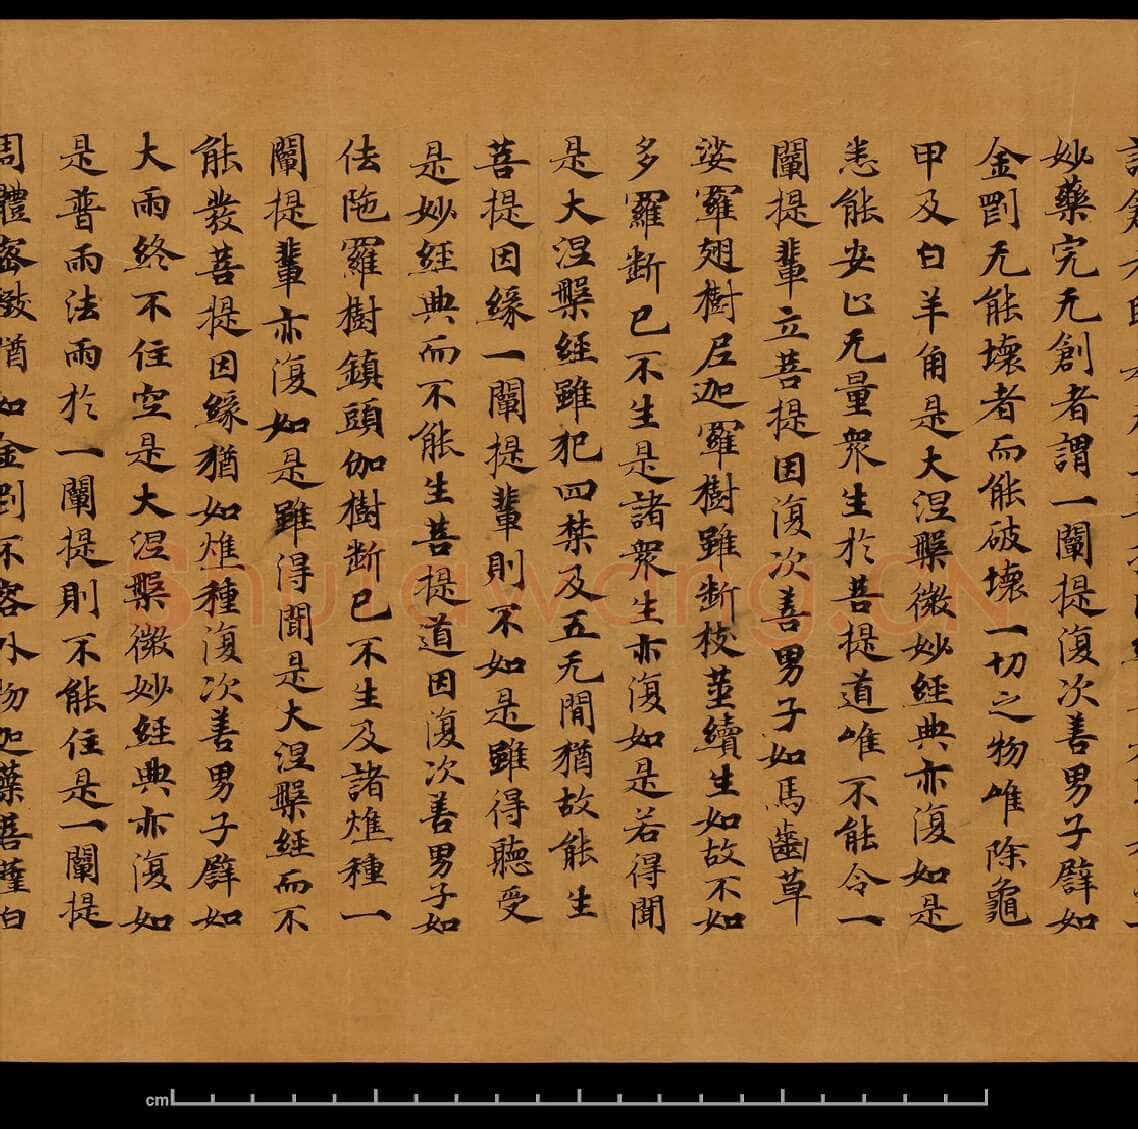 妙藥完无創者謂一闡提復次善男子辟如
金剛无能壞者而能破壞一切之物唯除龜
甲及白羊角是大涅槃微妙經典亦復如是
悉能安止无量衆生於菩提道唯不能令一
闡提輩立菩提因復次善男子如馬齒草
娑羅翅樹尼迦羅樹雖断枝莖續生如故不如
多羅断已不生是諸衆生亦復如是若得聞
是大涅槃經雖犯四禁及五无間猶故能生
菩提因緣一闡提輩則不如是雖得聽受
是妙經典而不能生菩提道因復次善男子如
佉陁羅樹鎮頭伽樹断已不生及諸燋種一
闡提輩亦復如是雖得聞是大涅槃經而不
能發菩提因緣猶如燋種復次善男子辟如
大雨終不住空是大涅槃微妙經典亦復如
是普雨法雨於一闡提則不能住是一闡提
周體密緻猶如金剛不容外物迦葉菩薩白
Shufawang.CN
cm